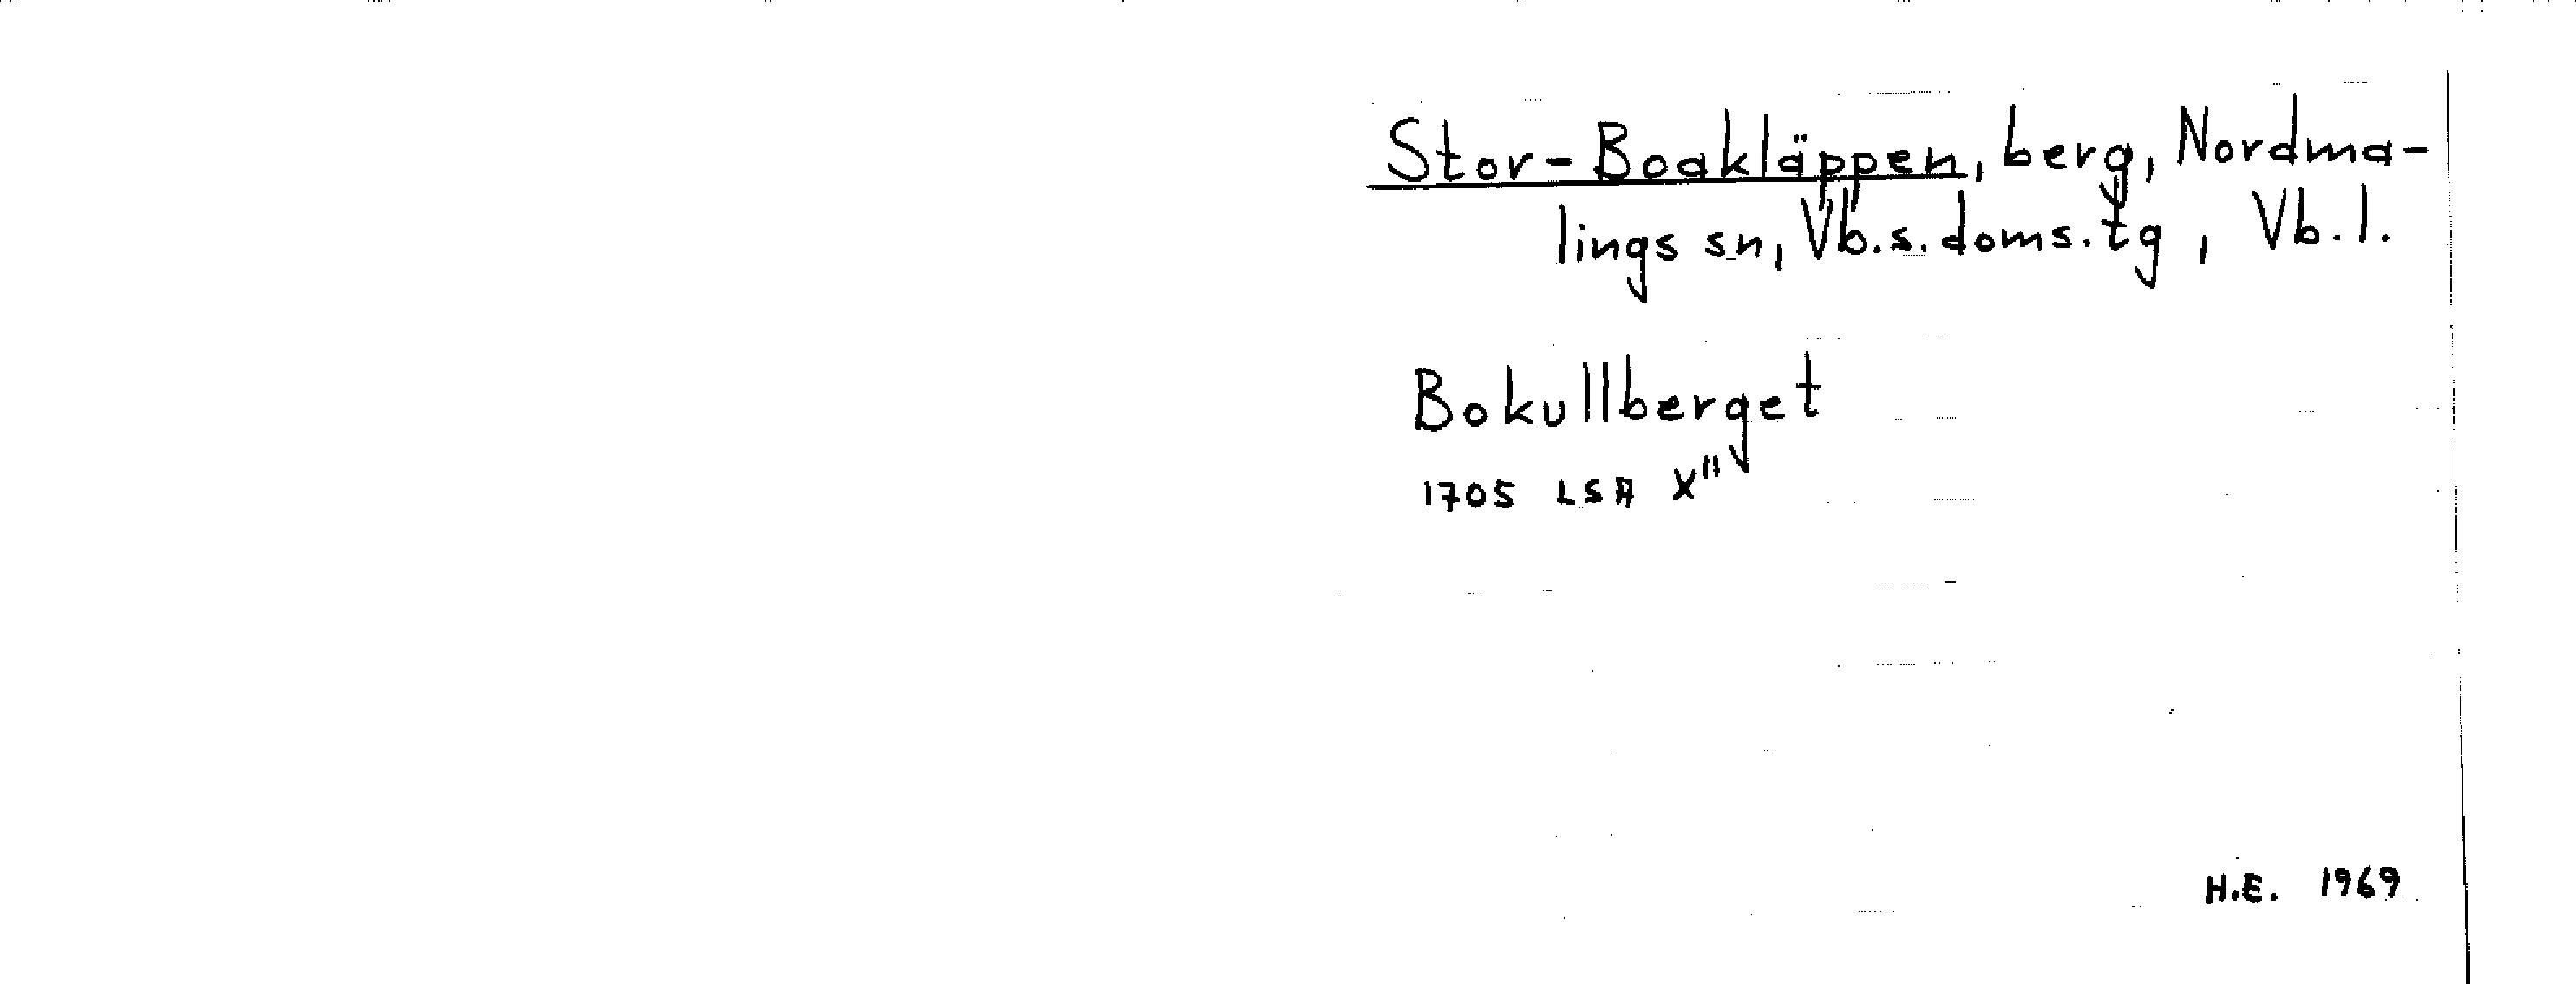 Stor-Boakläppen, berg, Nordma-
lings sn, Vb.s.doms.tg, Vb.l.
Bokullberget
1705 LSA X"
H.E. 1969